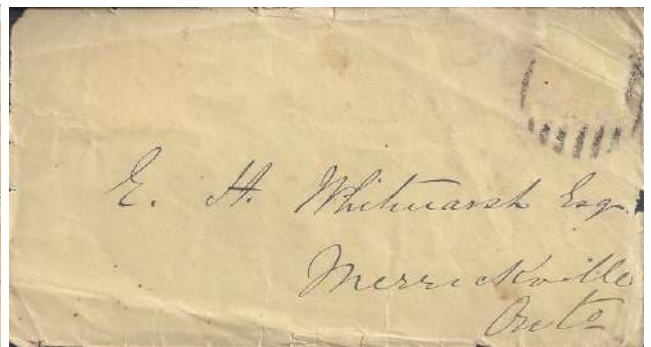 E. H. Whitmarsh Esq.
Merrickville
Onto